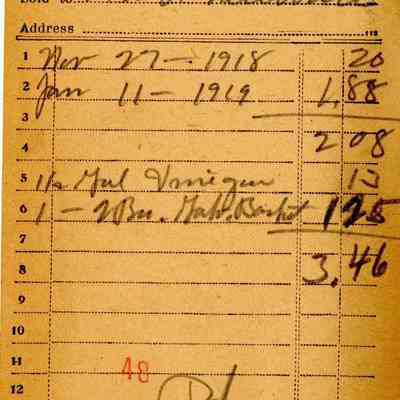 Sold to
Address
1 Nov 27 - 1918 20
2 Jan 11 - 1919 1.88
3
4 2 08
5 1/2 Gal Vinegar 13
6 1 - 2 Bu. Galv. Basket 1 25
7
8 3.46
9
10
11
12
48